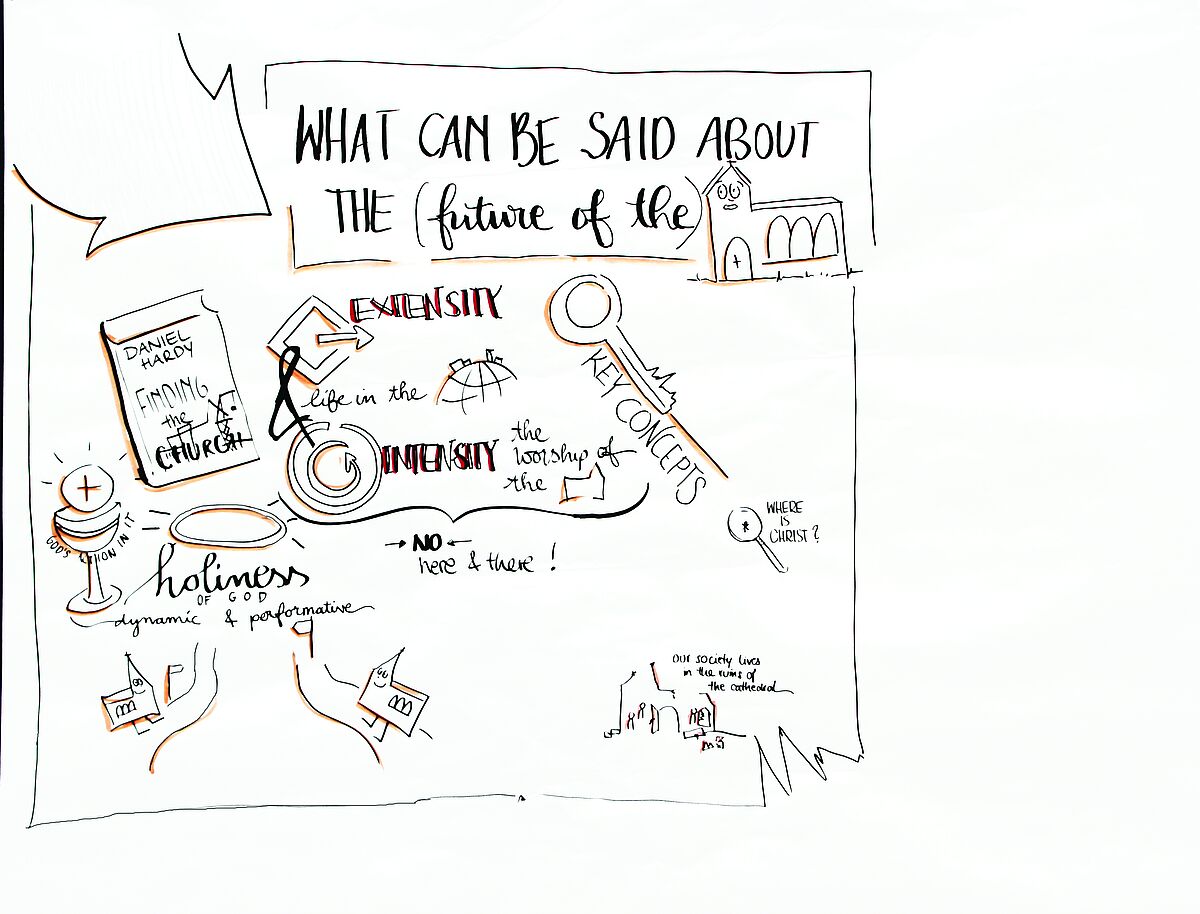 WHAT CAN BE SAID ABOUT
THE (future of the)
DANIEL
HARDY
FINDING
the
CHURCH
EXTENSITY
life in the
&
INTENSITY
the
worship of
the
KEY CONCEPTS
→ NO ←
here & there !
WHERE
IS
CHRIST?
GOD'S ACTION IN IT
holiness
OF GOD
dynamic & performative
our society lives
in the ruins of
the cathedral